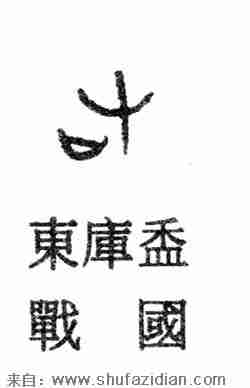 東庫盉
戰國
来自：www.shufazidian.com